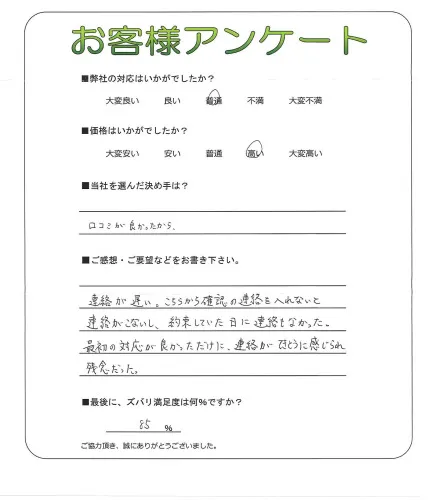 お客様アンケート
■弊社の対応はいかがでしたか?
大変良い 良い 普通 不満 大変不満
■価格はいかがでしたか?
大変安い 安い 普通 高い 大変高い
■当社を選んだ決め手は?
口コミが良かったから、
■ご感想・ご要望などをお書き下さい。
連絡が遅い。こちらから確認の連絡を入れないと
連絡がこないし、約束していた日に連絡もなかった。
最初の対応が良かっただけに、連絡が に感じられ
残念だった。
■最後に、ズバリ満足度は何%ですか?
85 %
ご協力頂き、誠にありがとうございました。